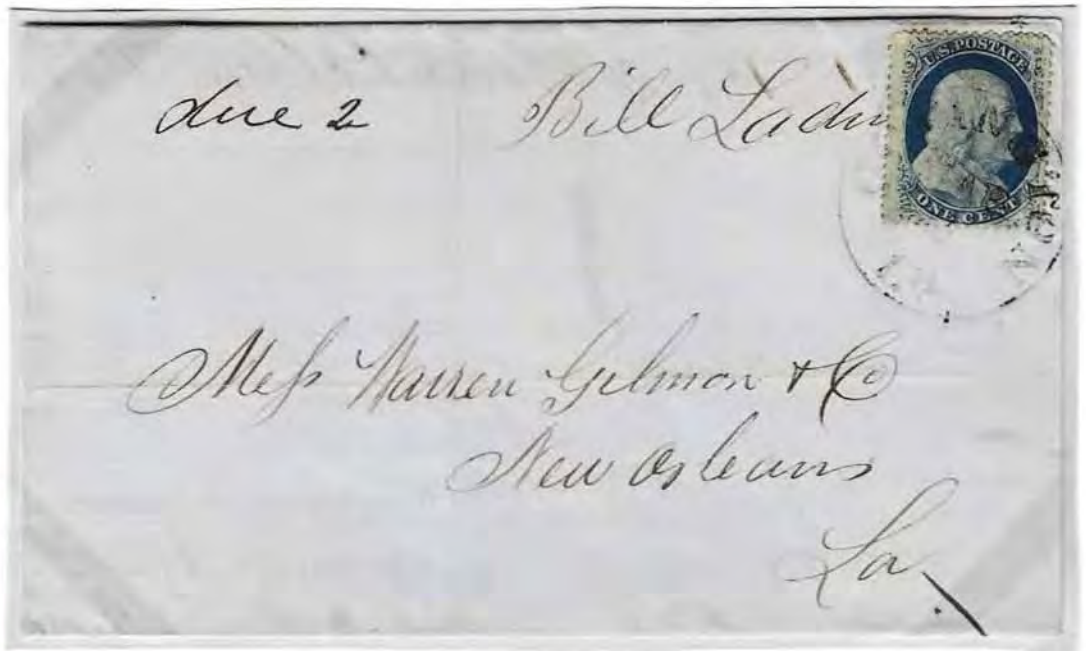 due 2 Bill Ladin
U.S. POSTAGE
ONE CENT
Mess Warren Gilmon & Co
New Orleans
La